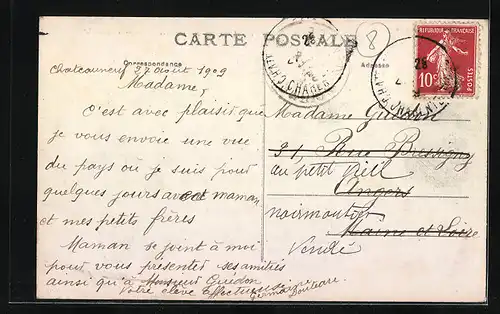 CARTE POSTALE
Correspondance
Adresse
8
REPUBLIQUE FRANÇAISE
10c
POSTES
27 Août 1909
Madame,
C'est avec plaisir que
je vous envoie une vue
du pays ou je suis pour
quelques jours avec maman
et mes petits frères
Maman se joint à moi
pour vous presenter ses amitiés
ainsi qu'à Monsieur Guédon
Votre élève affectueuse
Germaine
Madame
31, Rue Bressigny
au petit
Angers
noirmoutier
Maine et Loire
Vendée